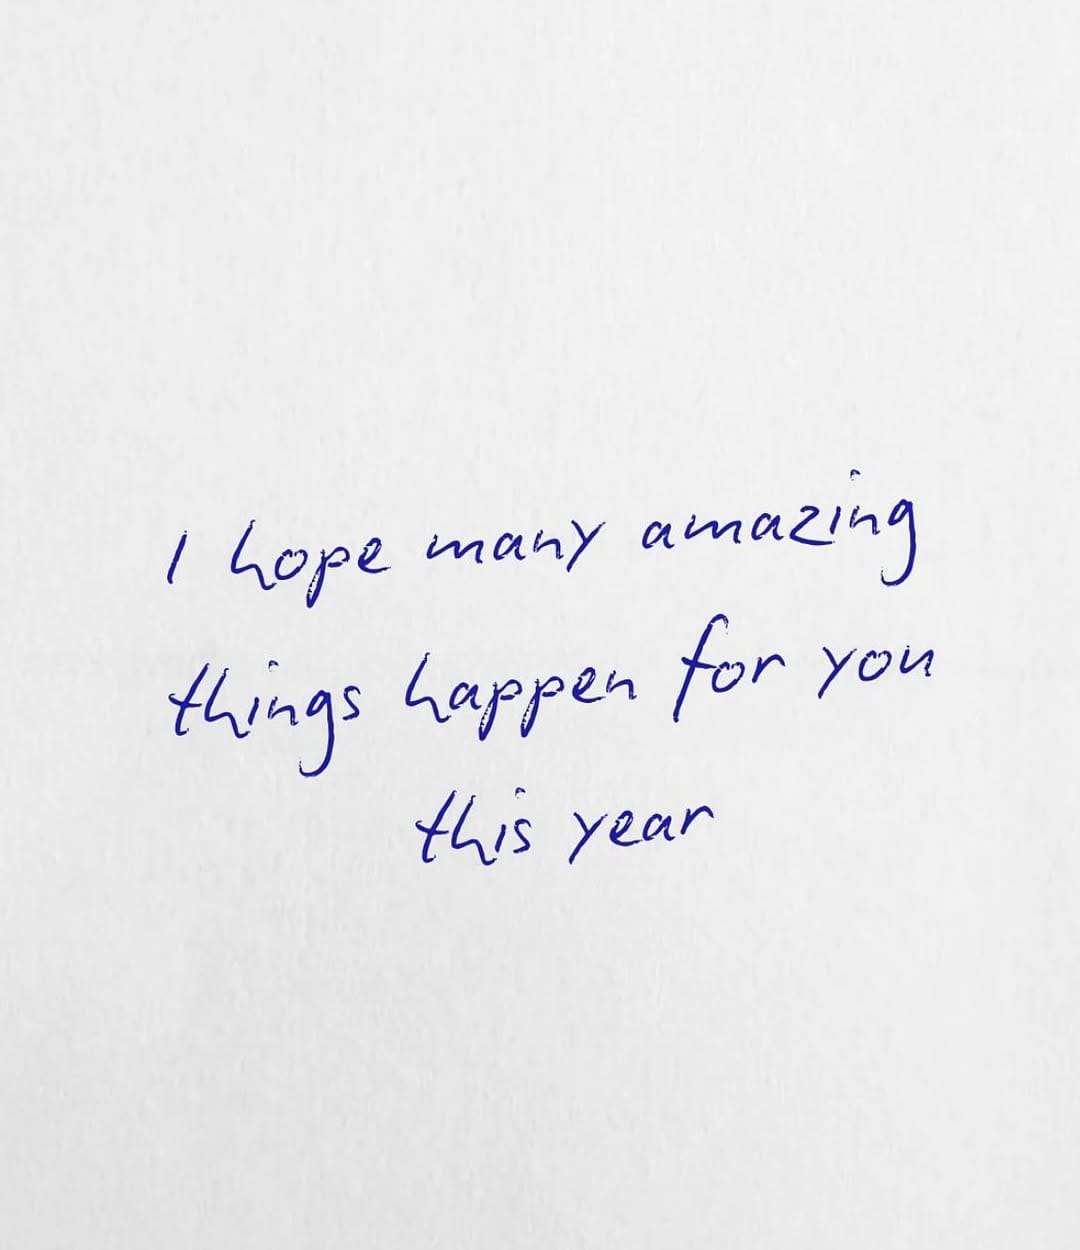 I hope many amazing
things happen for you
this year